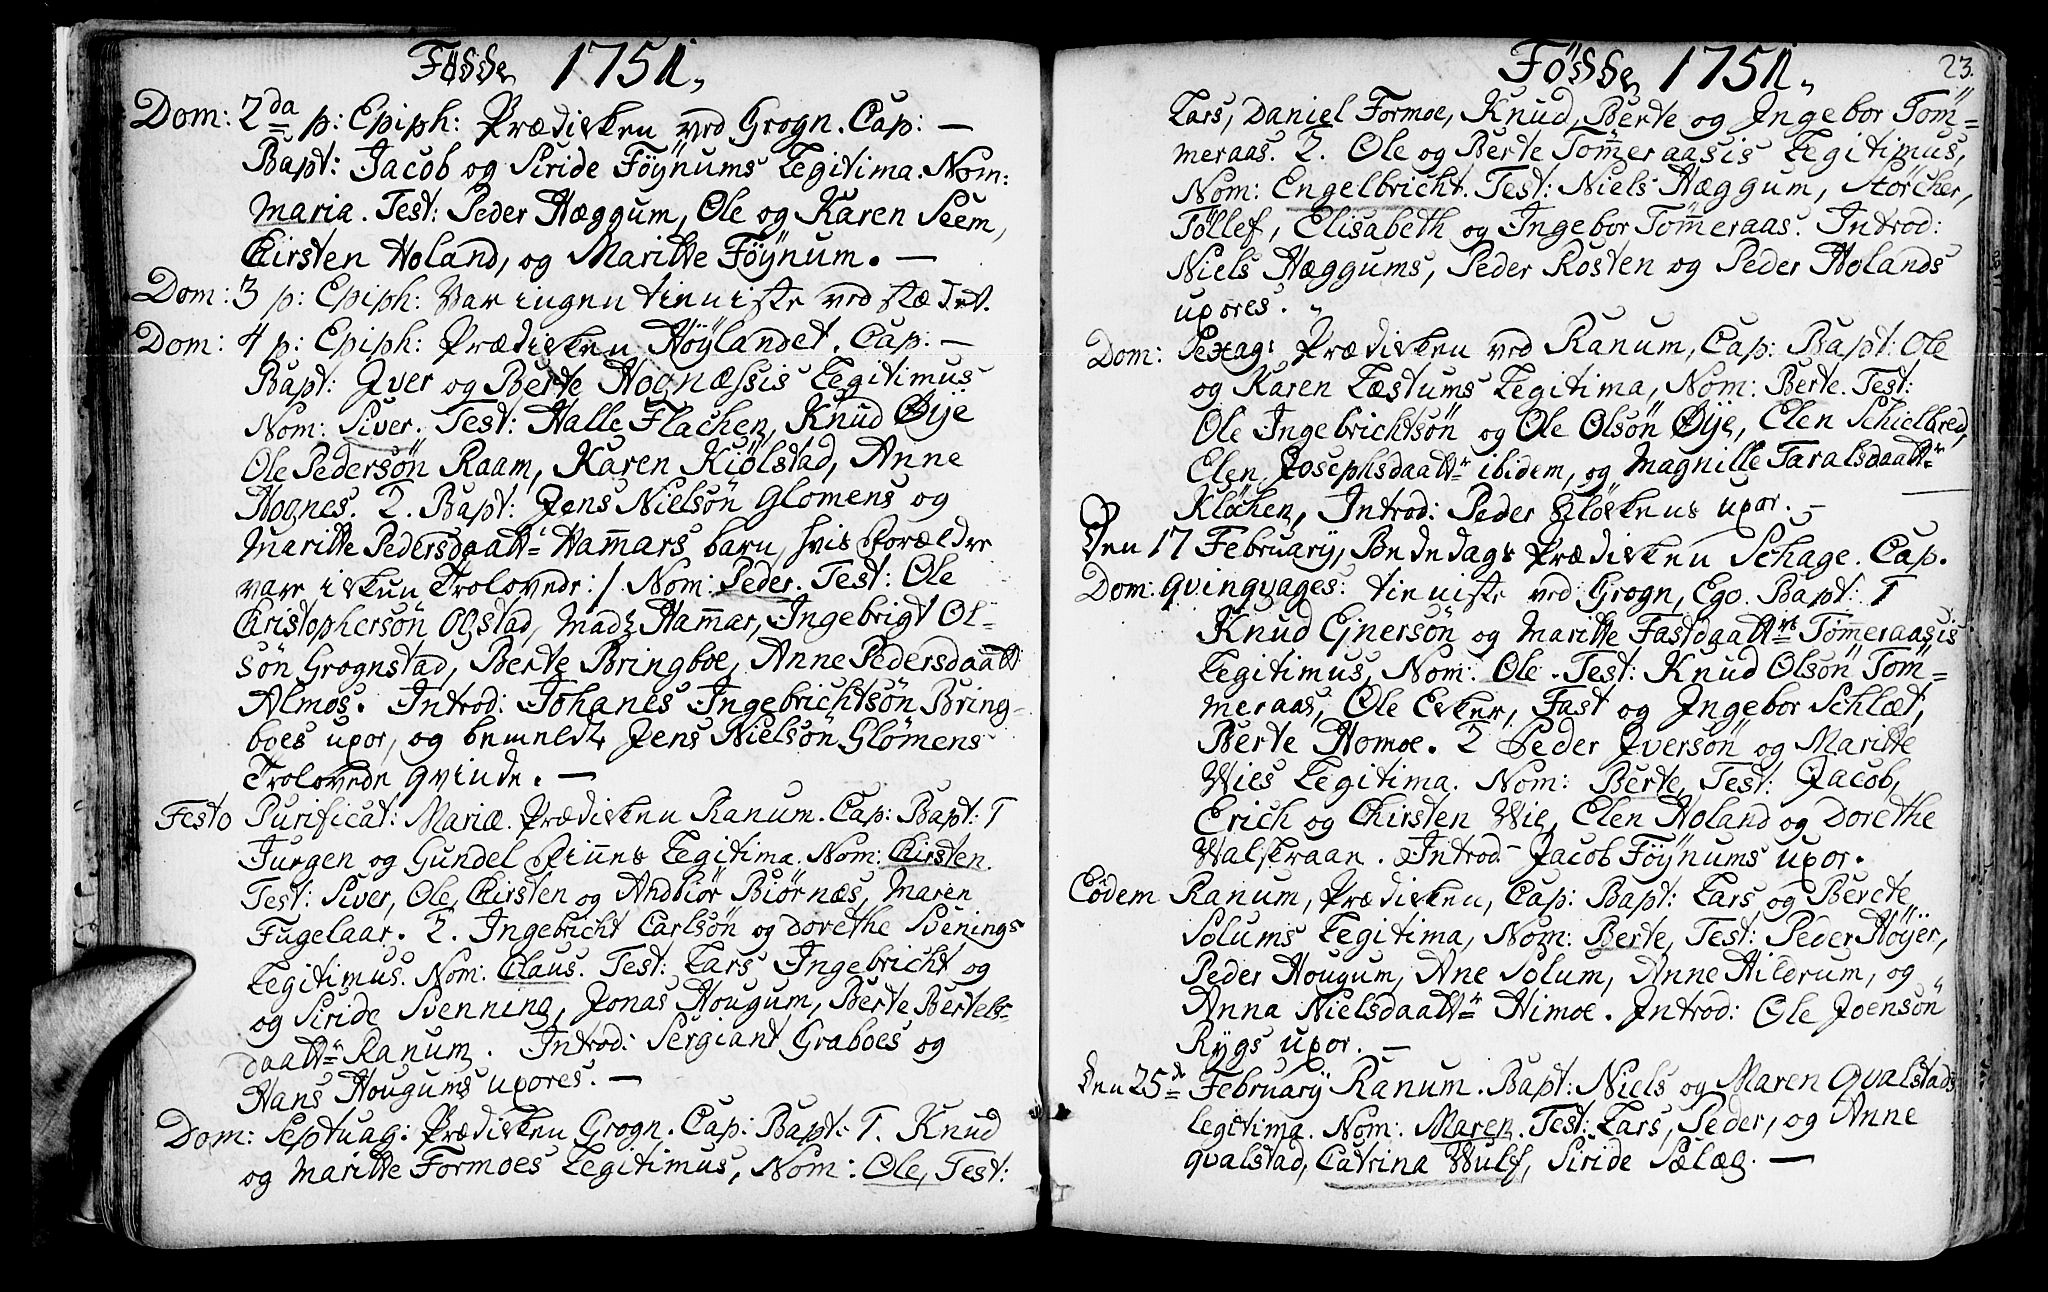 Födde 1751.
Dom: 2da p: Epiph: Prædicken ved Grogn. Cap: —
Bapt: Jacob og Siride Föÿnums Legitima. Nom:
Maria. Test: Peder Hæggum, Ole og Karen Seem,
Chirsten Holand, og Maritte Föÿnum. —
Dom: 3 p: Epiph: Var ingen tieniste ved stædet.
Dom: 4 p: Epiph: Prædicken Höÿlandet. Cap: —
Bapt: Iver og Berte Hognæssis Legitimus
Nom: Siver. Test: Halle Flachen, Knud Øije
Ole Pedersön Raam, Karen Kiölstad, Anne
Hognes. 2. Bapt: Jens Nielsön Glömens og
Maritte Pedersdaattr Ham̅ars barn, hvis Forældre
var ickun Trolovede :/ Nom: Peder. Test: Ole
Christophersön Ogstad, Madz Ham̅ar, Ingebrigt Ol-
sön Grognstad, Berte Bringboe, Anne Pedersdaattr
Almos. Introd: Johanes Ingebrichtsön Bring-
boes uxor, og bemeldte Jens Nielsön Glömens
Trolovede qvinde. —
Festo Purificat: Mariæ. Prædicken Ranum. Cap: Bapt: 1
Jurgen og Gundel Fin̅es Legitima. Nom: Chirsten.
Test: Siver, Ole, Chirsten og Andbiör Biörnæs, Maren
Fugelaar. 2. Ingebricht Carlsön og Dorethe Svenings
Legitimus. Nom: Claus. Test: Lars Ingebricht og
og Siride Svenning, Jonas Hougum, Berte Bertels-
daattr Ranum. Introd: Sergiant Graboes og
Hans Hougums uxores. —
Dom: Septuag: Prædicken Grogn. Cap: Bapt: 1. Knud
og Maritte Formoes Legitimus, Nom: Ole, Test:
Födde 1751.
23.
Lars, Daniel Formoe, Knud, Berte og Ingebor Töm-
meraas. 2. Ole og Berte Töm̅eraasis Legitimus,
Nom: Engelbricht. Test: Niels Hæggum, Störcher,
Töllef, Elisabeth og Ingebor Töm̅eraas. Introd:
Niels Hæggums, Peder Rosten og Peder Holands
uxores.
Dom: Sexag: Prædicken ved Ranum, Cap: Bapt: Ole
og Karen Læstums Legitima, Nom: Berte. Test:
Ole Ingebrichtsön og Ole Olsön Øije, Elen Schielbred,
Elen Josephsdaattr ibidem, og Magnille Taralsdaattr
Klöchen, Introd: Peder Klöckens uxor. —
Den 17 Februarÿ, Bededags Prædicken Schage. Cap.
Dom: qvinqvages: tieniste ved Grogn, Ego. Bapt: 1
Knud Ejnersön og Maritte Fastdaattrs Töm̅eraasis
Legitimus, Nom: Ole. Test: Knud Olsön Töm-
meraas, Ole Ecker, Fast og Ingebor Schlæt,
Berte Homoe. 2 Peder Iversön og Maritte
Wies Legitima. Nom: Berte, Test: Jacob,
Erich og Chirsten Wie, Elen Holand og Dorethe
Walskraan. Introd Jacob Föÿnums uxor.
Eodem Ranum, Prædicken, Cap: Bapt: Lars og Berete
Solums Legitima, Nom: Berte, Test: Peder Höÿer,
Peder Hougum, Ane Solum, Anne Hildrum, og
Anna Nielsdaattr Himoe. Introd: Ole Joensön
Rÿgs uxor. —
Den 25de Februarÿ Ranum. Bapt: Niels og Maren Qvalstads
Legitima. Nom: Maren. Test: Lars, Peder, og Anne
qvalstad, Catrina Wulf, Siride Sælæg. —